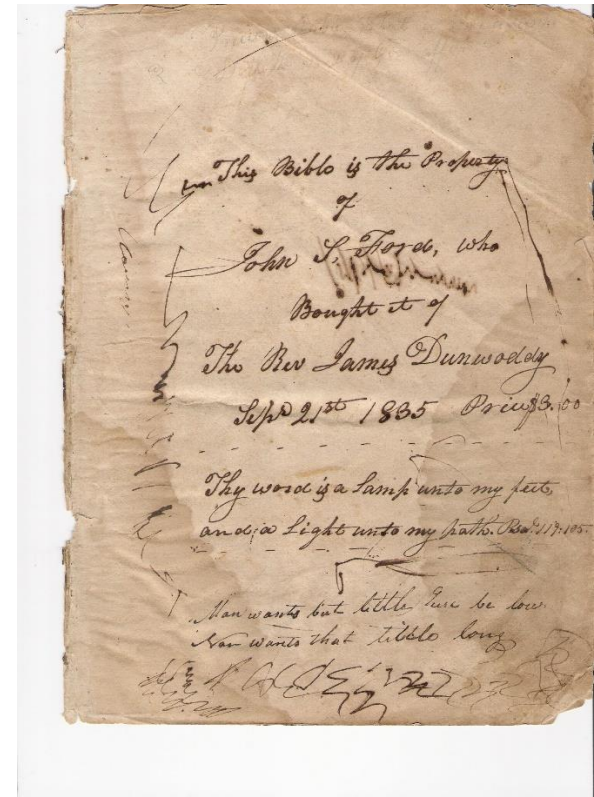 This Bible is the Property
of
John S. Ford, who
Bought it of
The Rev James Dunwoddy
Sept 21st 1835 Price $3.00
Thy word is a Lamp unto my feet,
and a Light unto my path. Psa. 119.105.
Man wants but little here be low
Nor wants that little long